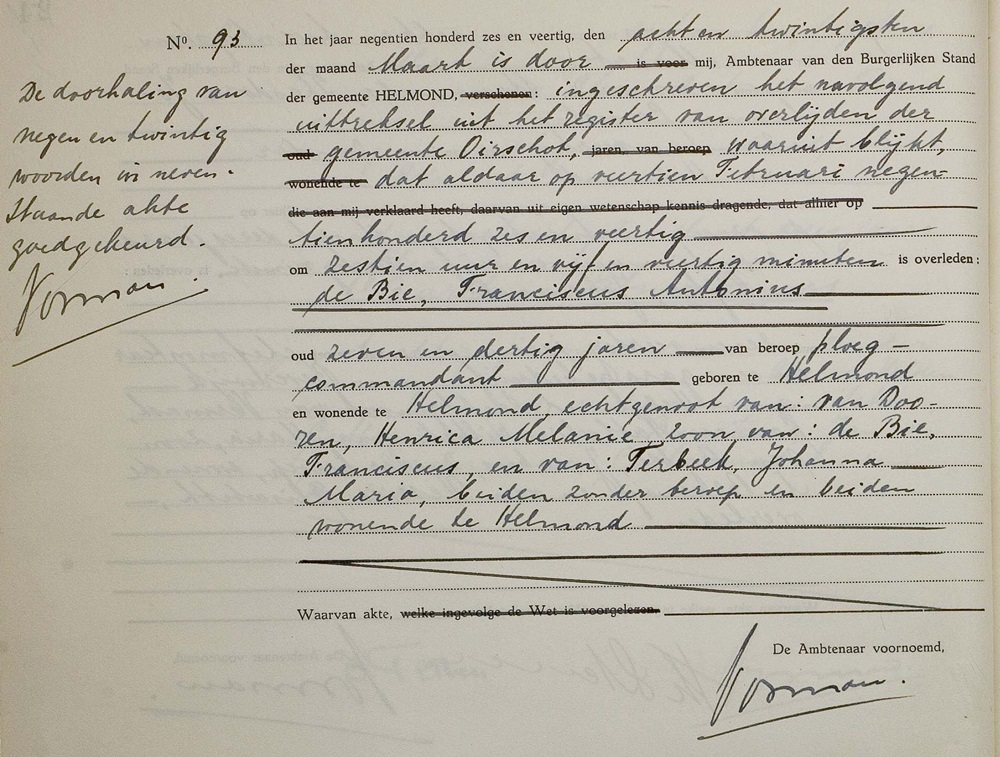 No. 93
De doorhaling van
negen en twintig
woorden in neven-
staande akte
goedgekeurd.
Vorman.
In het jaar negentien honderd zes en veertig, den acht en twintigsten
der maand Maart is door is voor mij, Ambtenaar van den Burgerlijken Stand
der gemeente HELMOND, verschenen: ingeschreven het navolgend
uittreksel uit het register van overlijden der
oud gemeente Oirschot, jaren, van beroep waaruit blijkt,
wonende te dat aldaar op veertien Februari negen-
die aan mij verklaard heeft, daarvan uit eigen wetenschap kennis dragende, dat alhier op
tienhonderd zes en veertig
om zestien uur en vijf en veertig minuten is overleden:
de Bie, Franciscus Antonius
oud zeven en dertig jaren van beroep ploeg-
commandant geboren te Helmond
en wonende te Helmond, echtgenoot van: van Doo-
ren, Henrica Melanie, zoon van: de Bie,
Franciscus, en van: Terbeek, Johanna
Maria, beiden zonder beroep en beiden
wonende te Helmond
Waarvan akte, welke ingevolge de Wet is voorgelezen.
De Ambtenaar voornoemd,
Vorman.